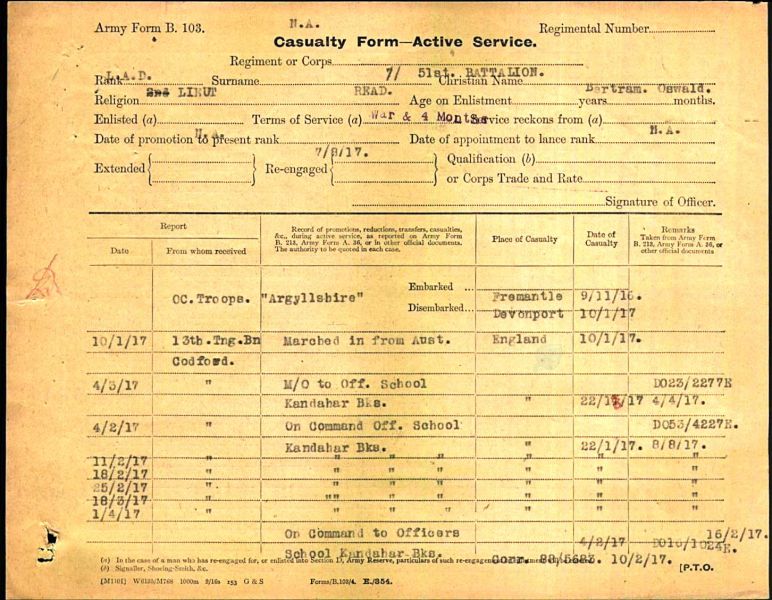 Army Form B. 103.
N.A.
Regimental Number
Casualty Form—Active Service.
Regiment or Corps 7/ 51st. BATTALION.
L.A.D.
Rank 2nd LIEUT Surname READ. Christian Name Bertram. Oswald.
Religion Age on Enlistment years months.
Enlisted (a) Terms of Service (a) War & 4 Months Service reckons from (a)
Date of promotion to present rank N.A. Date of appointment to lance rank N.A.
7/8/17.
Extended Re-engaged Qualification (b)
or Corps Trade and Rate
Signature of Officer.
Report Record of promotions, reductions, transfers, casualties, &c., during active service, as reported on Army Form B. 213, Army Form A. 36, or in other official documents. The authority to be quoted in each case. Place of Casualty Date of Casualty Remarks Taken from Army Form B. 213, Army Form A. 36, or other official documents
Date From whom received
OC. Troops. "Argyllshire" Embarked ... Fremantle 9/11/16.
Disembarked... Devonport 10/1/17
10/1/17 13th.Tng.Bn Marched in from Aust. England 10/1/17.
Codford.
4/3/17 " M/O to Off. School DO23/2277E
Kandahar Bks. " 22/1/17 4/4/17.
4/2/17 " On Command Off. School DO53/4227E.
Kandahar Bks. " 22/1/17. 8/8/17.
11/2/17 " " " " " " "
18/2/17 " " " " " "
25/2/17 " " " " " "
18/3/17 " "" " " " "
1/4/17 " " " " " " "
On Command to Officers 16/2/17.
School Kandahar Bks. 4/2/17 DO10/1024E.
Corr. 88/5623. 10/2/17.
(a) In the case of a man who has re-engaged for, or enlisted into Section D, Army Reserve, particulars of such re-engagement
(b) Signaller, Shoeing-Smith, &c. [P.T.O.
[M1101] W6133/M768 1000m 9/16s 153 G & S Forms/B.103/4. E./354.